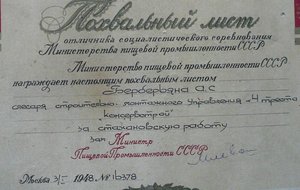 Похвальный лист
отличника социалистического соревнования
Министерства пищевой промышленности СССР
Министерство пищевой промышленности СССР
награждает настоящим похвальным листом
Берберьяна А.С.
слесаря строительно монтажного управления "4 треста
консервстрой"
за стахановскую работу
зам. Министр
Пищевой Промышленности СССР
Москва 1948 г. №